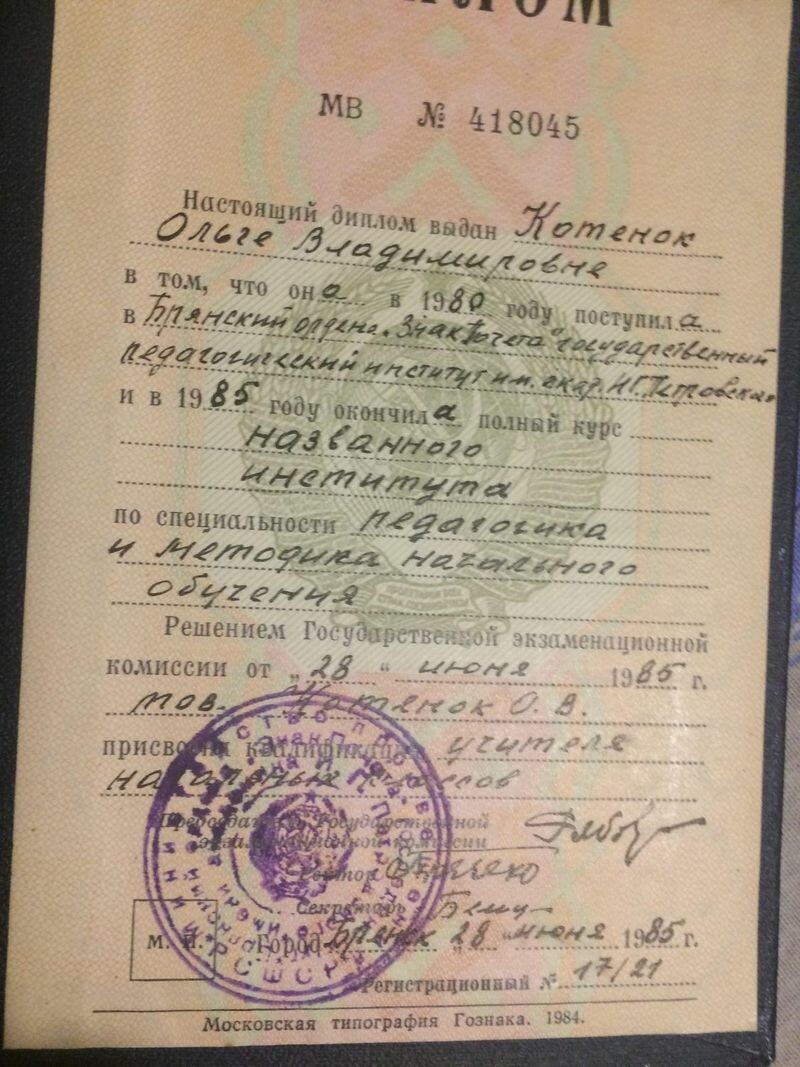 ДИПЛОМ
МВ № 418045
Настоящий диплом выдан Котенок
Ольге Владимировне
в том, что она в 1980 году поступила
в Брянский ордена „Знак Почета“ государственный
педагогический институт им. акад. И.Г. Петровского
и в 1985 году окончила полный курс
названного
института
по специальности педагогика
и методика начального
обучения
Решением Государственной экзаменационной
комиссии от „28“ июня 1985 г.
тов. Котенок О. В.
присвоена квалификация учителя
начальных классов
Председатель Государственной
экзаменационной комиссии
Ректор
Секретарь
М. П. Город Брянск „28“ июня 1985 г.
Регистрационный № 17/21
Московская типография Гознака. 1984.